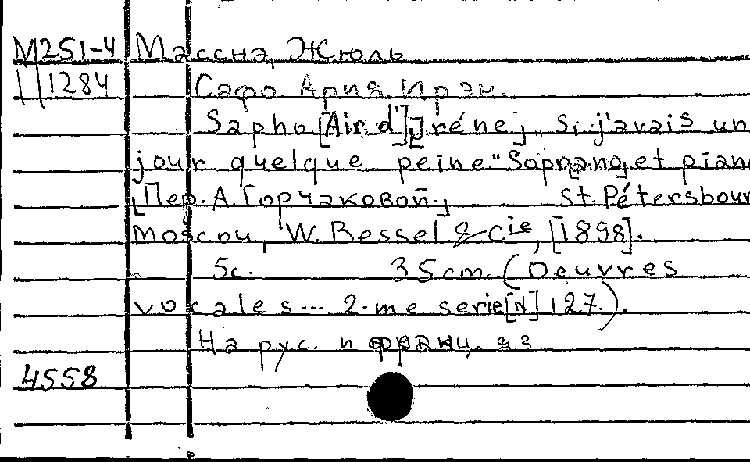 М251-4 Массна, Жюль
11284 Сафо. Ария Ирэн.
Sapho [Air d'Iréne] „Si j'avais un
jour quelque peine." Soprano et piano
[Пер. А. Горчаковой.] St. Pétersbour
Moscou, W. Bessel & Cie, [1898].
5с. 35cm. (Oeuvres
vocales... 2-me serie [N] 127.).
На рус. и франц. яз
4558